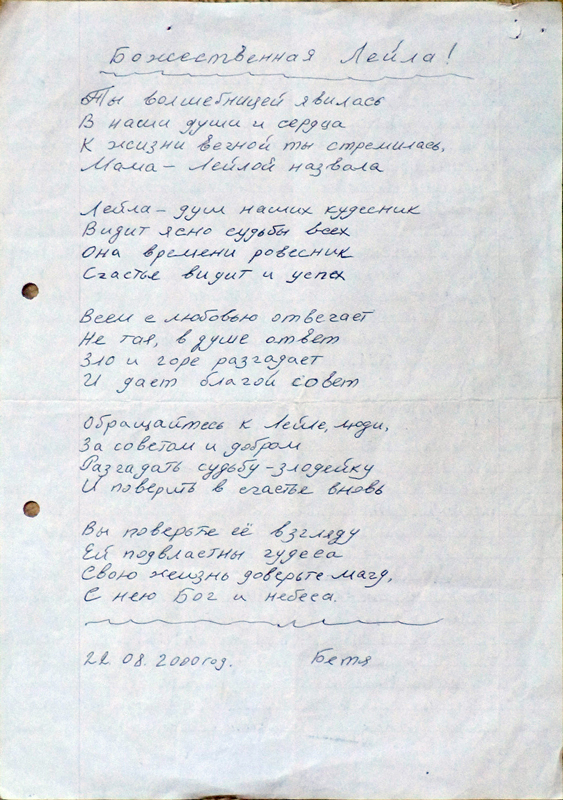 Божественная Лейла!
Ты волшебницей явилась
В наши души и сердца
К жизни вечной ты стремилась,
Мама – Лейлой назвала
Лейла – душ наших кудесник
Видит ясно судьбы всех
Она времени ровесник
Счастье видит и успех
Всем с любовью отвечает
Не тая, в душе ответ
Зло и горе разгадает
И дает благой совет
Обращайтесь к Лейле, люди,
За советом и добром
Разгадать судьбу-злодейку
И поверить в счастье вновь
Вы поверьте её взгляду
Ей подвластны чудеса
Свою жизнь доверьте магу,
С нею Бог и небеса.
22.08.2000год. Бетя